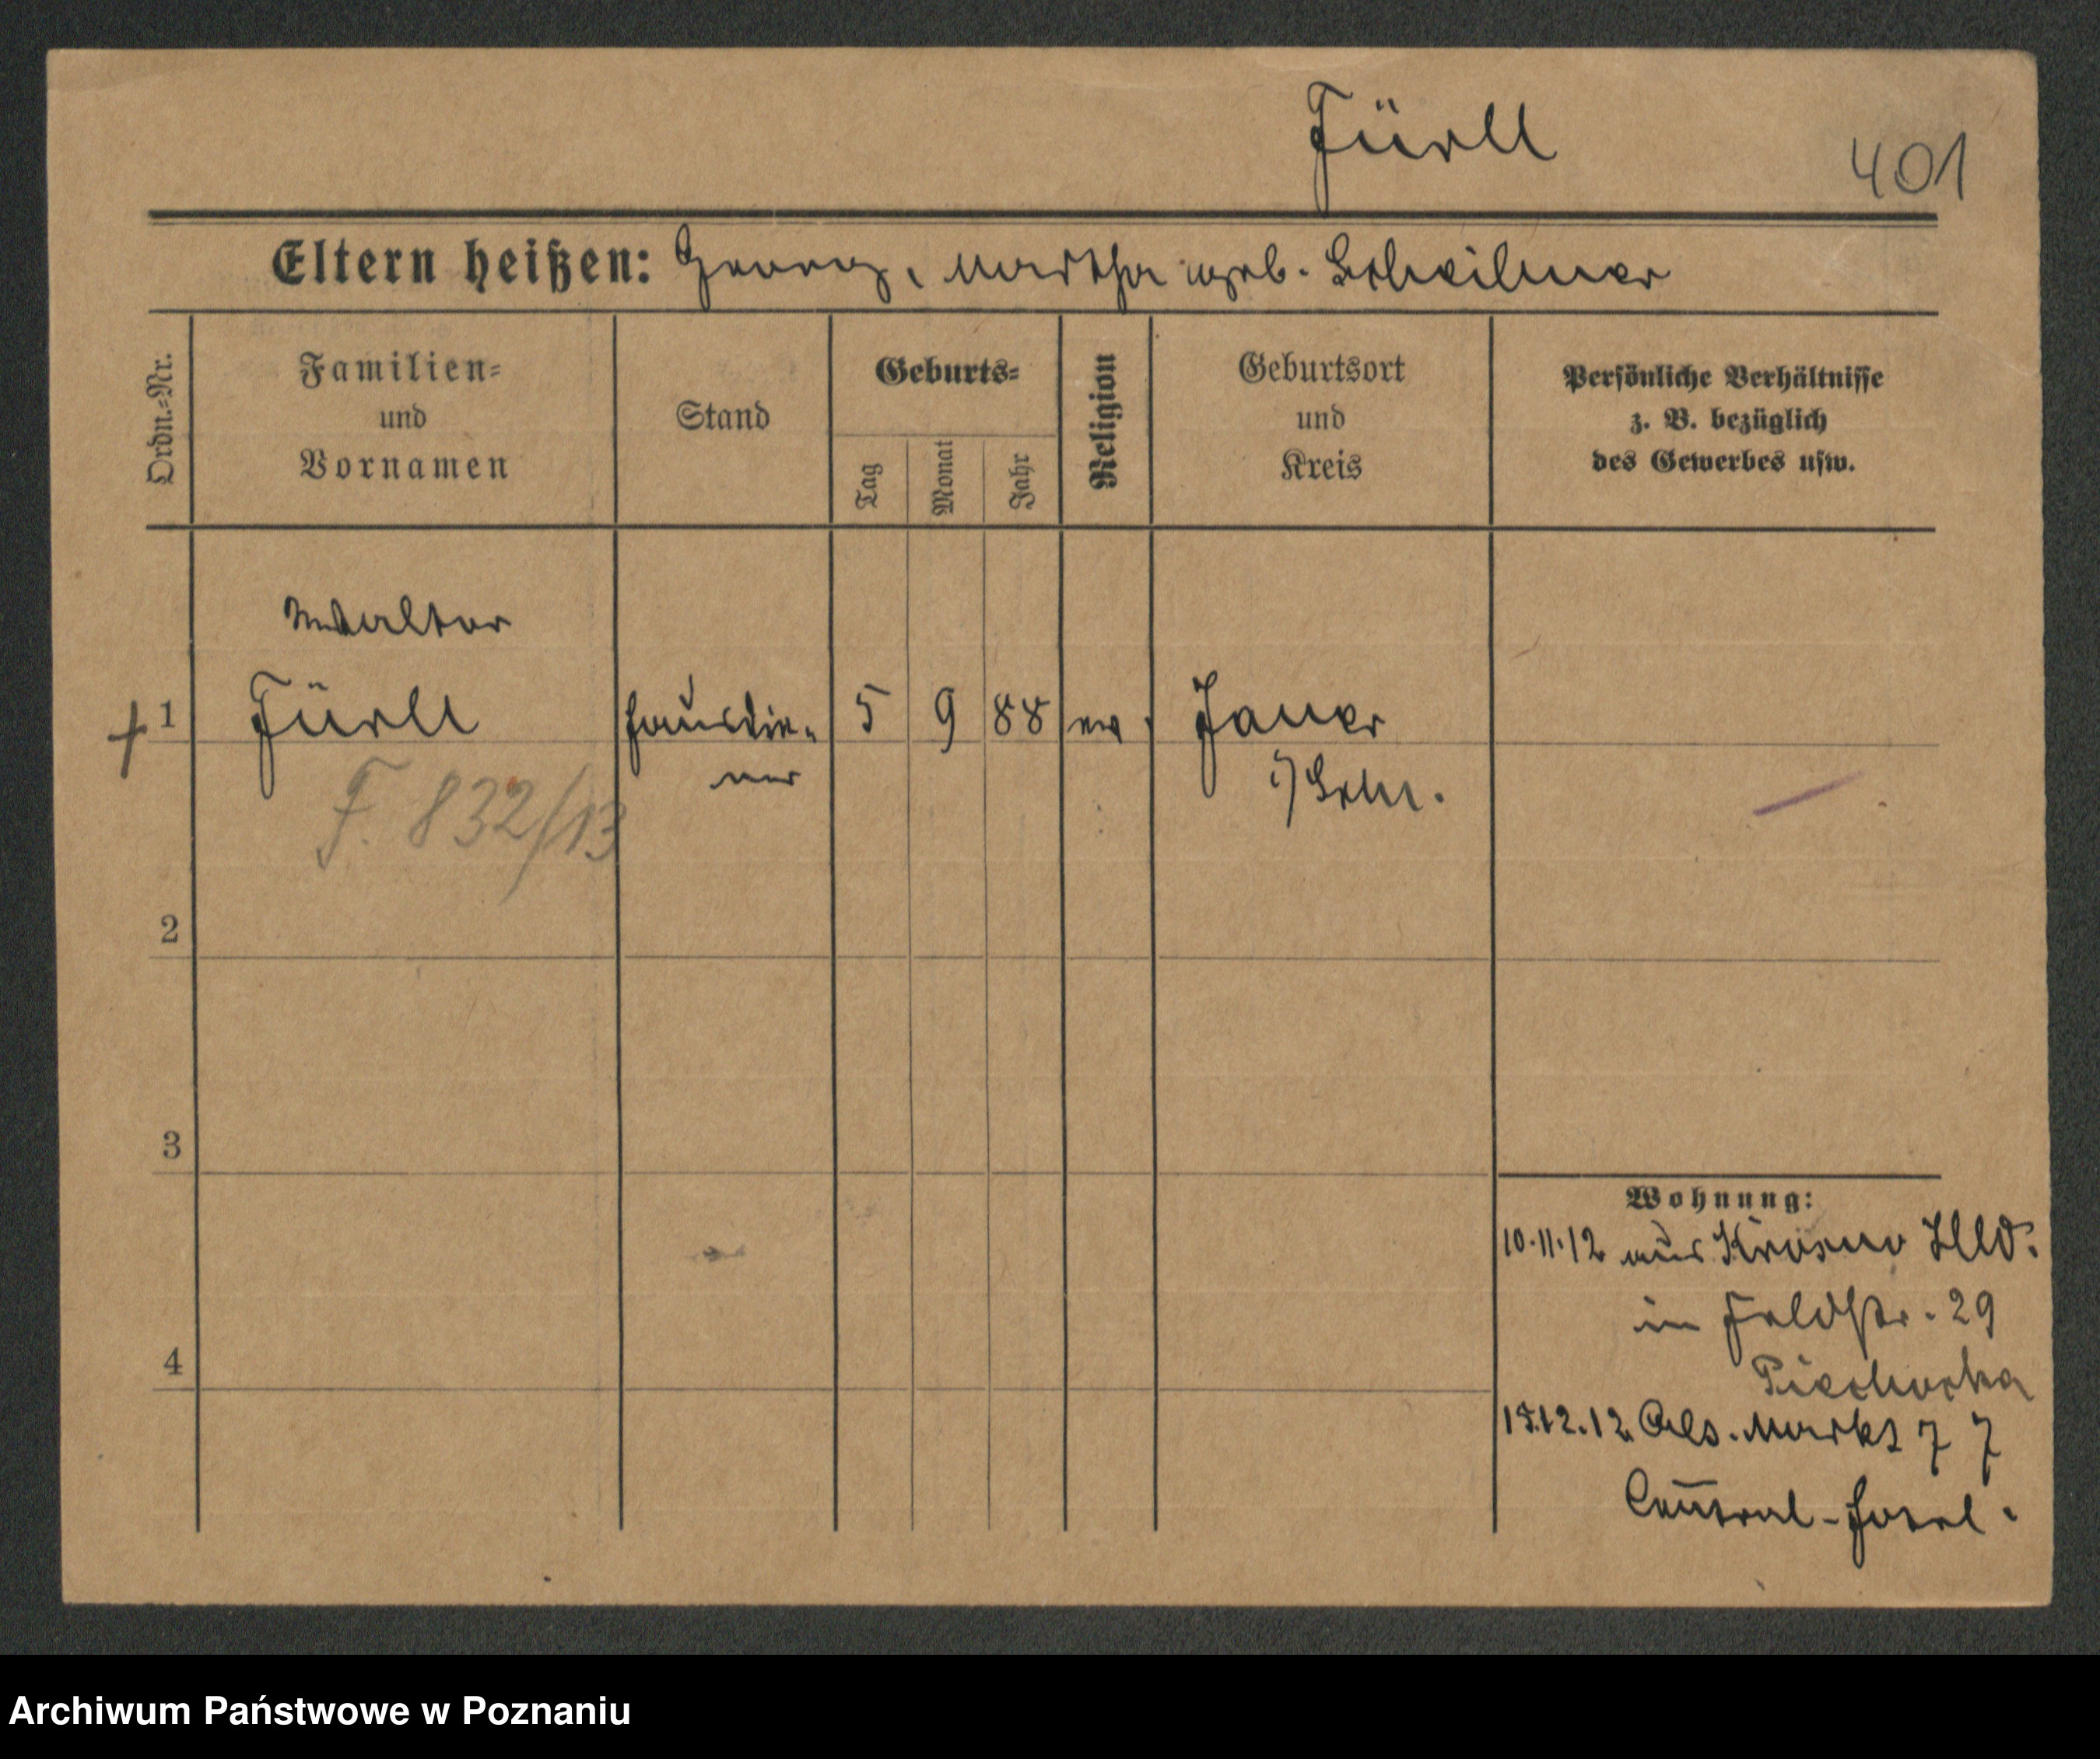 Fürll
401
Eltern heißen: Georg, Martha geb. Scheilner
Ordn.=Nr.
Familien=
und
Vornamen
Stand
Geburts=
Tag
Monat
Jahr
Religion
Geburtsort
und
Kreis
Persönliche Verhältnisse
z. B. bezüglich
des Gewerbes usw.
Walter
1 Fürll Hausdie= 5 9 88 ev. Jauer
ner i/Schl.
F. 832/13
2
3
4
Wohnung:
10.11.12 aus Krosno
in Feldstr. 29
Piechocka
12.12 Markt 7 7
Central-Hotel.
Archiwum Państwowe w Poznaniu